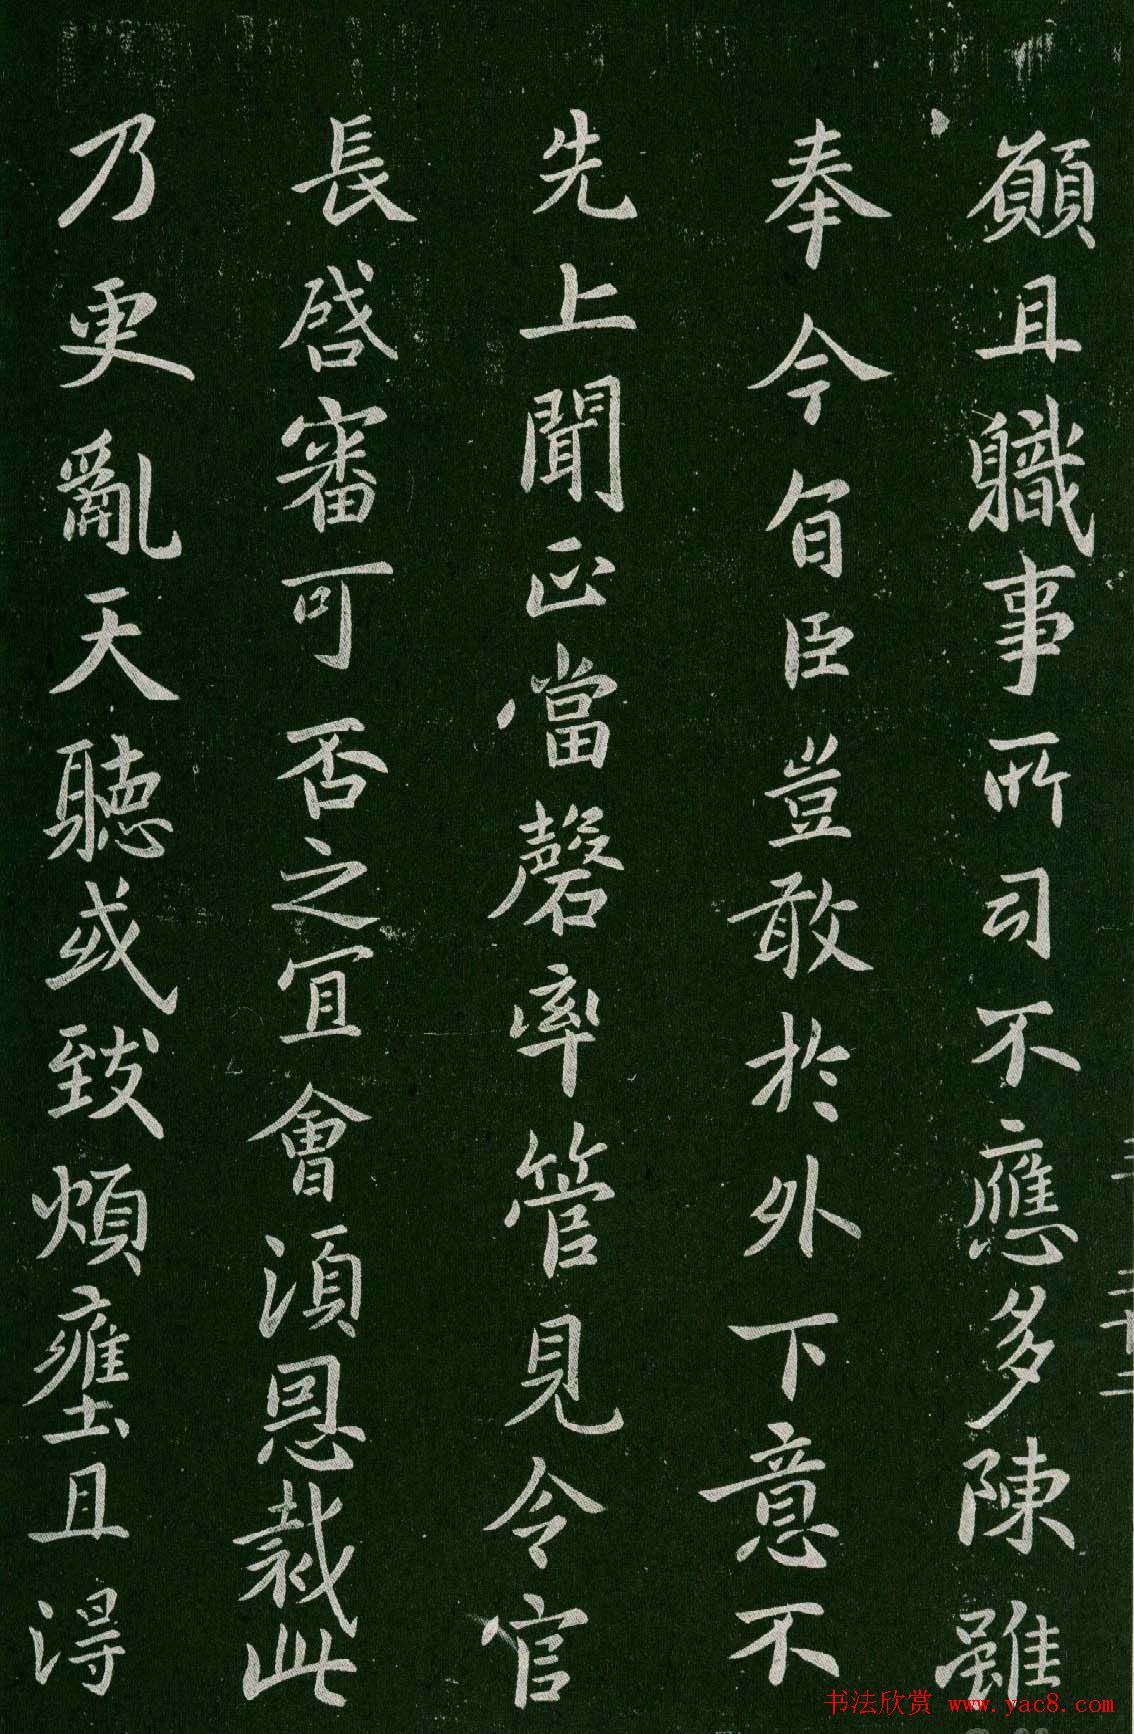 願且職事所司不應多陳雖
奉今旨臣豈敢於外下意不
先上聞正當罄率管見令官
長啓審可否之宜會須恩裁此
乃更亂天聽或致煩壅且得
书法欣赏 www.yac8.com